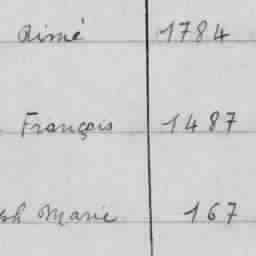 Aimé 1784
François 1487
Marie 167